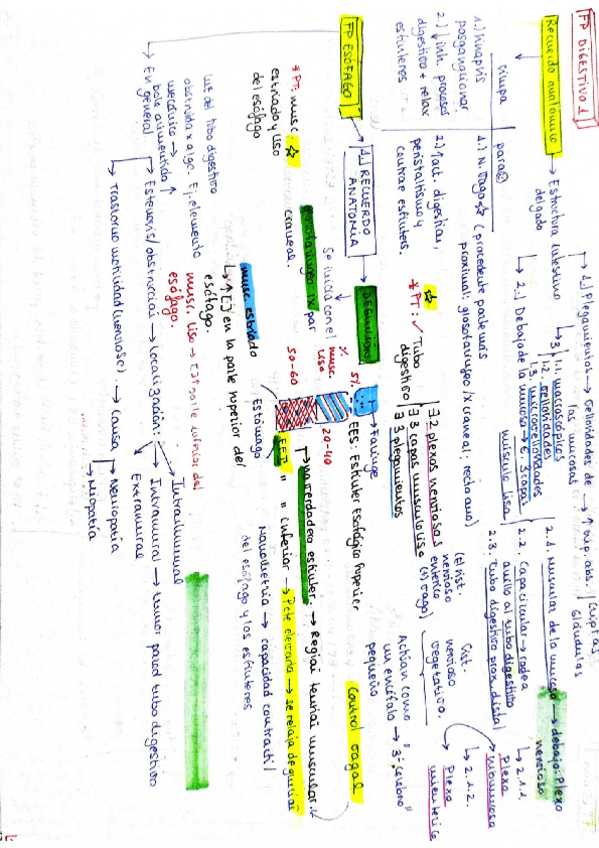 FP DIGESTIVO 1
Recuerdo anatómico → Estructura intestino delgado
1.) Plegamientos → Vellosidades de las mucosas → ↑ sup. abs. (criptas / Glándulas
1.1. macroscópicos
1.2. vellosidades
1.3. microvellosidades
2.) Debajo de la mucosa → ∃ 3 capas músculo lisa
2.1. Muscular de la mucosa → debajo: Plexo nervioso
2.2. Capa circular → rodea
anillo al tubo digestivo
2.3. Tubo digestivo prox. distal
2.1.1. Plexo submucosa
2.1.2. Plexo mientérico
simpa
para
1.) Sinapsis
posganglionar
2.) ↓ inh. procesos
digestivo + relax
esfínteres
1.) N. Vago ☆ (procedente parte más
proximal: glosofaríngeo IX craneal: recto ano)
2.) act. digestión,
peristaltismo y
contrae esfínteres.
* PT: ✓ Tubo
digestivo
∃ 2 plexos nerviosos
∃ 3 capas musculo lisa
∃ 3 plegamientos
(2) sist.
nervioso
entérico
(1) vago
Sist.
nervioso
vegetativo.
Actúan como
un encéfalo → 3er "cerebro"
pequeño
FP ESÓFAGO
1.) RECUERDO
ANATOMÍA
DEGLUCIÓN
Se inicia con el
glosofaríngeo IX par
craneal.
* PT: musc. ☆
estriado y liso
del esófago
%
musc.
liso
5%
50-60
20-40
→ Faringe
EES: Esfínter Esofágico Superior
→ no verdadero esfínter. → Región tensión muscular.
Control vagal
EEI " " (inferior → Pote elevada → se relaja deglución
Estómago
Manometría → capacidad contráctil
del esófago y los esfínteres
musc. estriado
↳ ↑ [ ] en la parte superior del
esófago.
musc. liso → [ ] ↑ parte inferior del
esófago.
Luz del tubo digestivo
obstruida x algo. Ej. elemento
→ En general
→ Estenosis/obstrucción → Localización:
Intraluminal
Intramural → tumor pared tubo digestivo
Extramural
→ Trastorno motilidad (nervioso) → Causa
Neuropatía
Miopatía